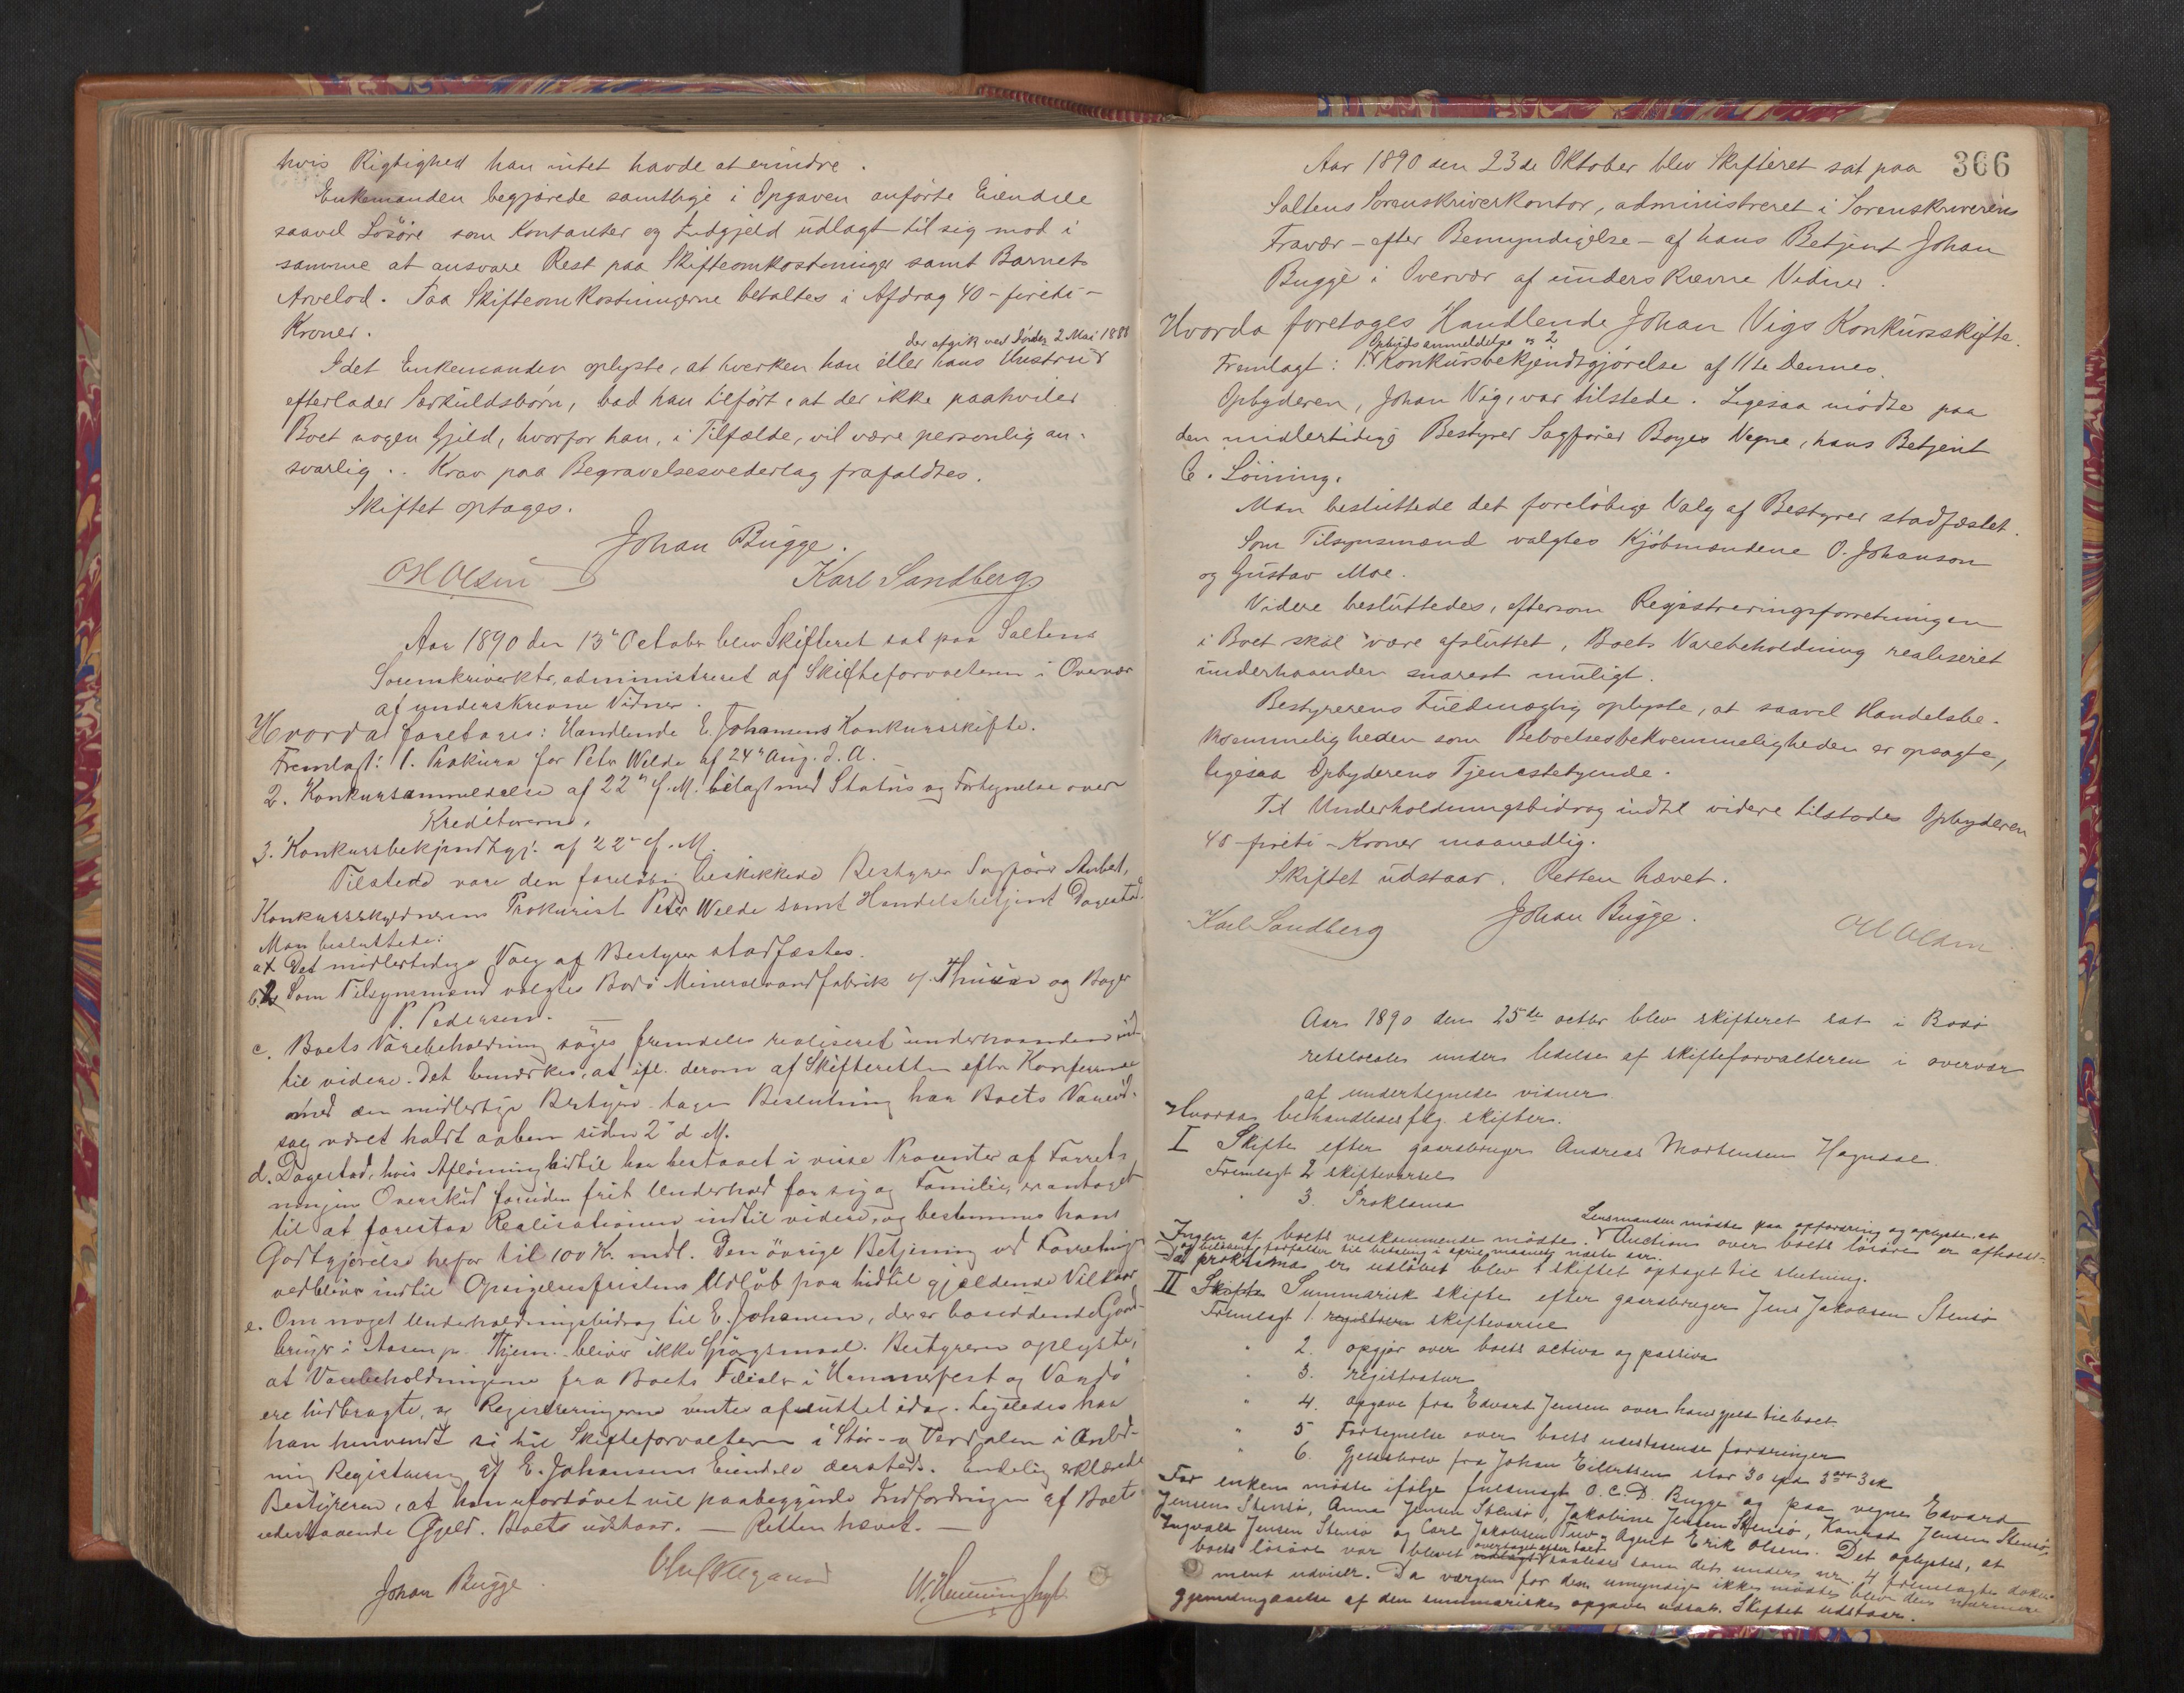 hvis Rigtighed han intet havde at erindre.
Enkemanden begjærede samtlige i Opgaven anførte Eiendele
saavel Løsøre som Kontanter og Indgjeld udlagt til sig mod i
samme at ansvare Rest paa Skifteomkostninger samt Barnets
Arvelod. Paa Skifteomkostningerne betaltes i Afdrag 40 - firéti -
Kroner.
der afgik ved Døden 2 Mai 1888
Idet Enkemanden oplyste, at hverken han eller hans Hustru
efterlader Særkuldsbørn, bad han tilført, at der ikke paahviler
Boet nogen Gjeld, hvorfor han, i Tilfælde, vil være personlig an-
svarlig. Krav paa Begravelsesvederlag frafaldtes.
Skiftet optages.
Johan Bugge.
O H Olsen Karl Sandberg
Aar 1890 den 13de Octobr blev Skifteret sat paa Saltens
Sorenskriverktr, administreret af Skifteforvalteren i Overvær
af underskrevne Vidner.
Hvorda foretages: Handlende E. Johansens Konkursskifte.
Fremlagt: 1. Prokura for Peter Welde af 24de Aug. d. A.
2. Konkursanmeldelse af 22de f. M. bilagt med Status og Fortegnelse over
Kreditorerne.
3. Konkursbekjendtgj. af 22de f. M.
Tilstede vare den foreløbig beskikkede Bestyrer Sagfører
Konkursskyldnerens Prokurist Peter Welde samt Handelsbetjent Dagestad.
Man besluttede:
a Det midlertidige Valg af Bestyrer stadfæstes.
b. Som Tilsynsmænd valgtes Bodø Mineralvandfabrik v/ og Bager
P. Pedersen.
c. Boets Varebeholdning søges fremdeles realiseret underhaanden ind
til videre. Det bemærkes, at ifl. derom af Skifteretten efter Konference
med den midlertidige Bestyrer tagen Beslutning har Boets Vareud-
sag været holdt aaben siden 2de d. M.
d. Dagestad, hvis Aflønning hidtil har bestaaet i visse Procenter af Forret-
ningens Overskud foruden frit Underhold for sig og Familie, er antaget
til at forestaa Realisationen indtil videre, og bestemmes hans
Godtgjørelse herfor til 100 Kr. mdl. Den øvrige Betjening ved Forretningen
vedbliver indtil Opsigelsesfristens Udløb paa hidtil gjældende Vilkaar
e. Om noget Underholdningsbidrag til E. Johansen, der er bosiddende Gaard-
bruger i Aasen pr. Thjem. bliver ikke Spørgsmaal. Bestyreren oplyste,
at Varebeholdningerne fra Boets Filialer i Hammerfest og Vardø
ere hidbragte, og Registreringerne ventes afsluttet idag. Ligeledes har
han henvendt sig til Skifteforvalteren i Stør- og Verdalen i Anled-
ning Registrering af E. Johansens Eiendele dersteds. Endelig erklærede
Bestyreren, at han ufortøvet vil paabegynde Indfordringen af Boets
udestaaende Gjeld. Boets udstaar. — Retten hævet. —
Johan Bugge.
366
Aar 1890 den 23de Oktober blev Skifteret sat paa
Saltens Sorenskriverkontor, administreret i Sorenskriverens
Fravær - efter Bemyndigelse - af hans Betjent Johan
Bugge i Overvær af underskrevne Vidner.
Hvorda foretoges Handlende Johan Vigs Konkursskifte.
Opbudsanmeldelse og 2
Fremlagt: 1. Konkursbekjendtgjørelse af 11te Dennes.
Opbyderen, Johan Vig, var tilstede. Ligesaa mødte paa
den midlertidige Bestyrer Sagfører Boyes Vegne, hans Betjent
C. Lönning.
Man besluttede det foreløbige Valg af Bestyrer stadfæstet.
Som Tilsynsmænd valgtes Kjøbmændene O. Johanson
og Gustav Moe.
Videre besluttedes, eftersom Registreringsforretningen
i Boet skal være afsluttet, Boets Varebeholdning realiseret
underhaanden snarest muligt.
Bestyrerens Fuldmægtig oplyste, at saavel Handelsbe-
kvemmeligheden som Beboelsesbekvemmeligheden er opsagte,
ligesaa Opbyderens Tjenestetyende.
Til Underholdningsbidrag indtil videre tilstodes Opbyderen
40 - firéti - Kroner maanedlig.
Skiftet udstaar. Retten hævet.
Karl Sandberg Johan Bugge. O H Olsen
Aar 1890 den 25de octbr blev skifteret sat i Bodø
retslocale under ledelse af skifteforvalteren i overvær
af undertegnede vidner
Hvorda behandledes flg. skifter.
I Skifte efter gaardbruger Andreas Mortensen Hagndal
Fremlagt 2 skiftevarsel
" 3. Proklama
Lensmanden mødte paa opfordring og oplyste, at
Ingen af boets vedkommende mødte. Auction over boets løsøre er afholdt
og forfalder til betaling i april maaned næste aar.
Da proklama er udløbet blev skiftet optaget til slutning.
II Skifte Summarisk skifte efter gaardbruger Jens Jakobsen Stensø
Fremlagt 1. registrern skiftevarsel
" 2. opgjør over boets activa og passiva
" 3. registratur
" 4. opgave fra Edvard Jensen over hans gjeld til boet
" 5 Fortegnelse over boets udestaaende fordringer
" 6. Gjeldsbrev fra Johan Eilertsen stor 30 spd 3 ort 3 sk
For enken mødte ifølge fuldmagt O. C. D. Bugge og paa vegne Edvard
Jensen Stensø, Anna Jensen Stensø, Jakobine Jensen Stensø, Konrad Jensen Stensø,
Ingvald Jensen Stensø og Carl Jakobsen Agent Erik Olsen. Det oplystes, at
overtaget efter boet
boets løsøre var blevet udlagt saaledes som det under nr. 4 fremlagte doku-
ment udviser. Da værgen for den umyndige ikke mødte blev den nærmere
gjennemgaaelse af den summariske opgave udsat. Skiftet udstaar.